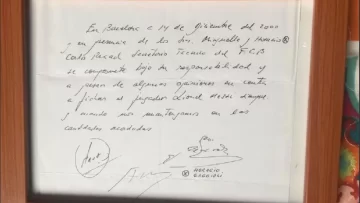 En Barcelona a 14 de diciembre del 2000
y en presencia de los Srs. Minguella y Horacio ®
Carles Rexach Secretario Tecnico del F.C.B
se compromete bajo su responsabilidad y
a pesar de algunas opiniones en contra
a fichar al jugador Lionel Messi siempre
y cuando nos mantengamos en las
cantidades acordadas
® HORACIO
GAGGIOLI